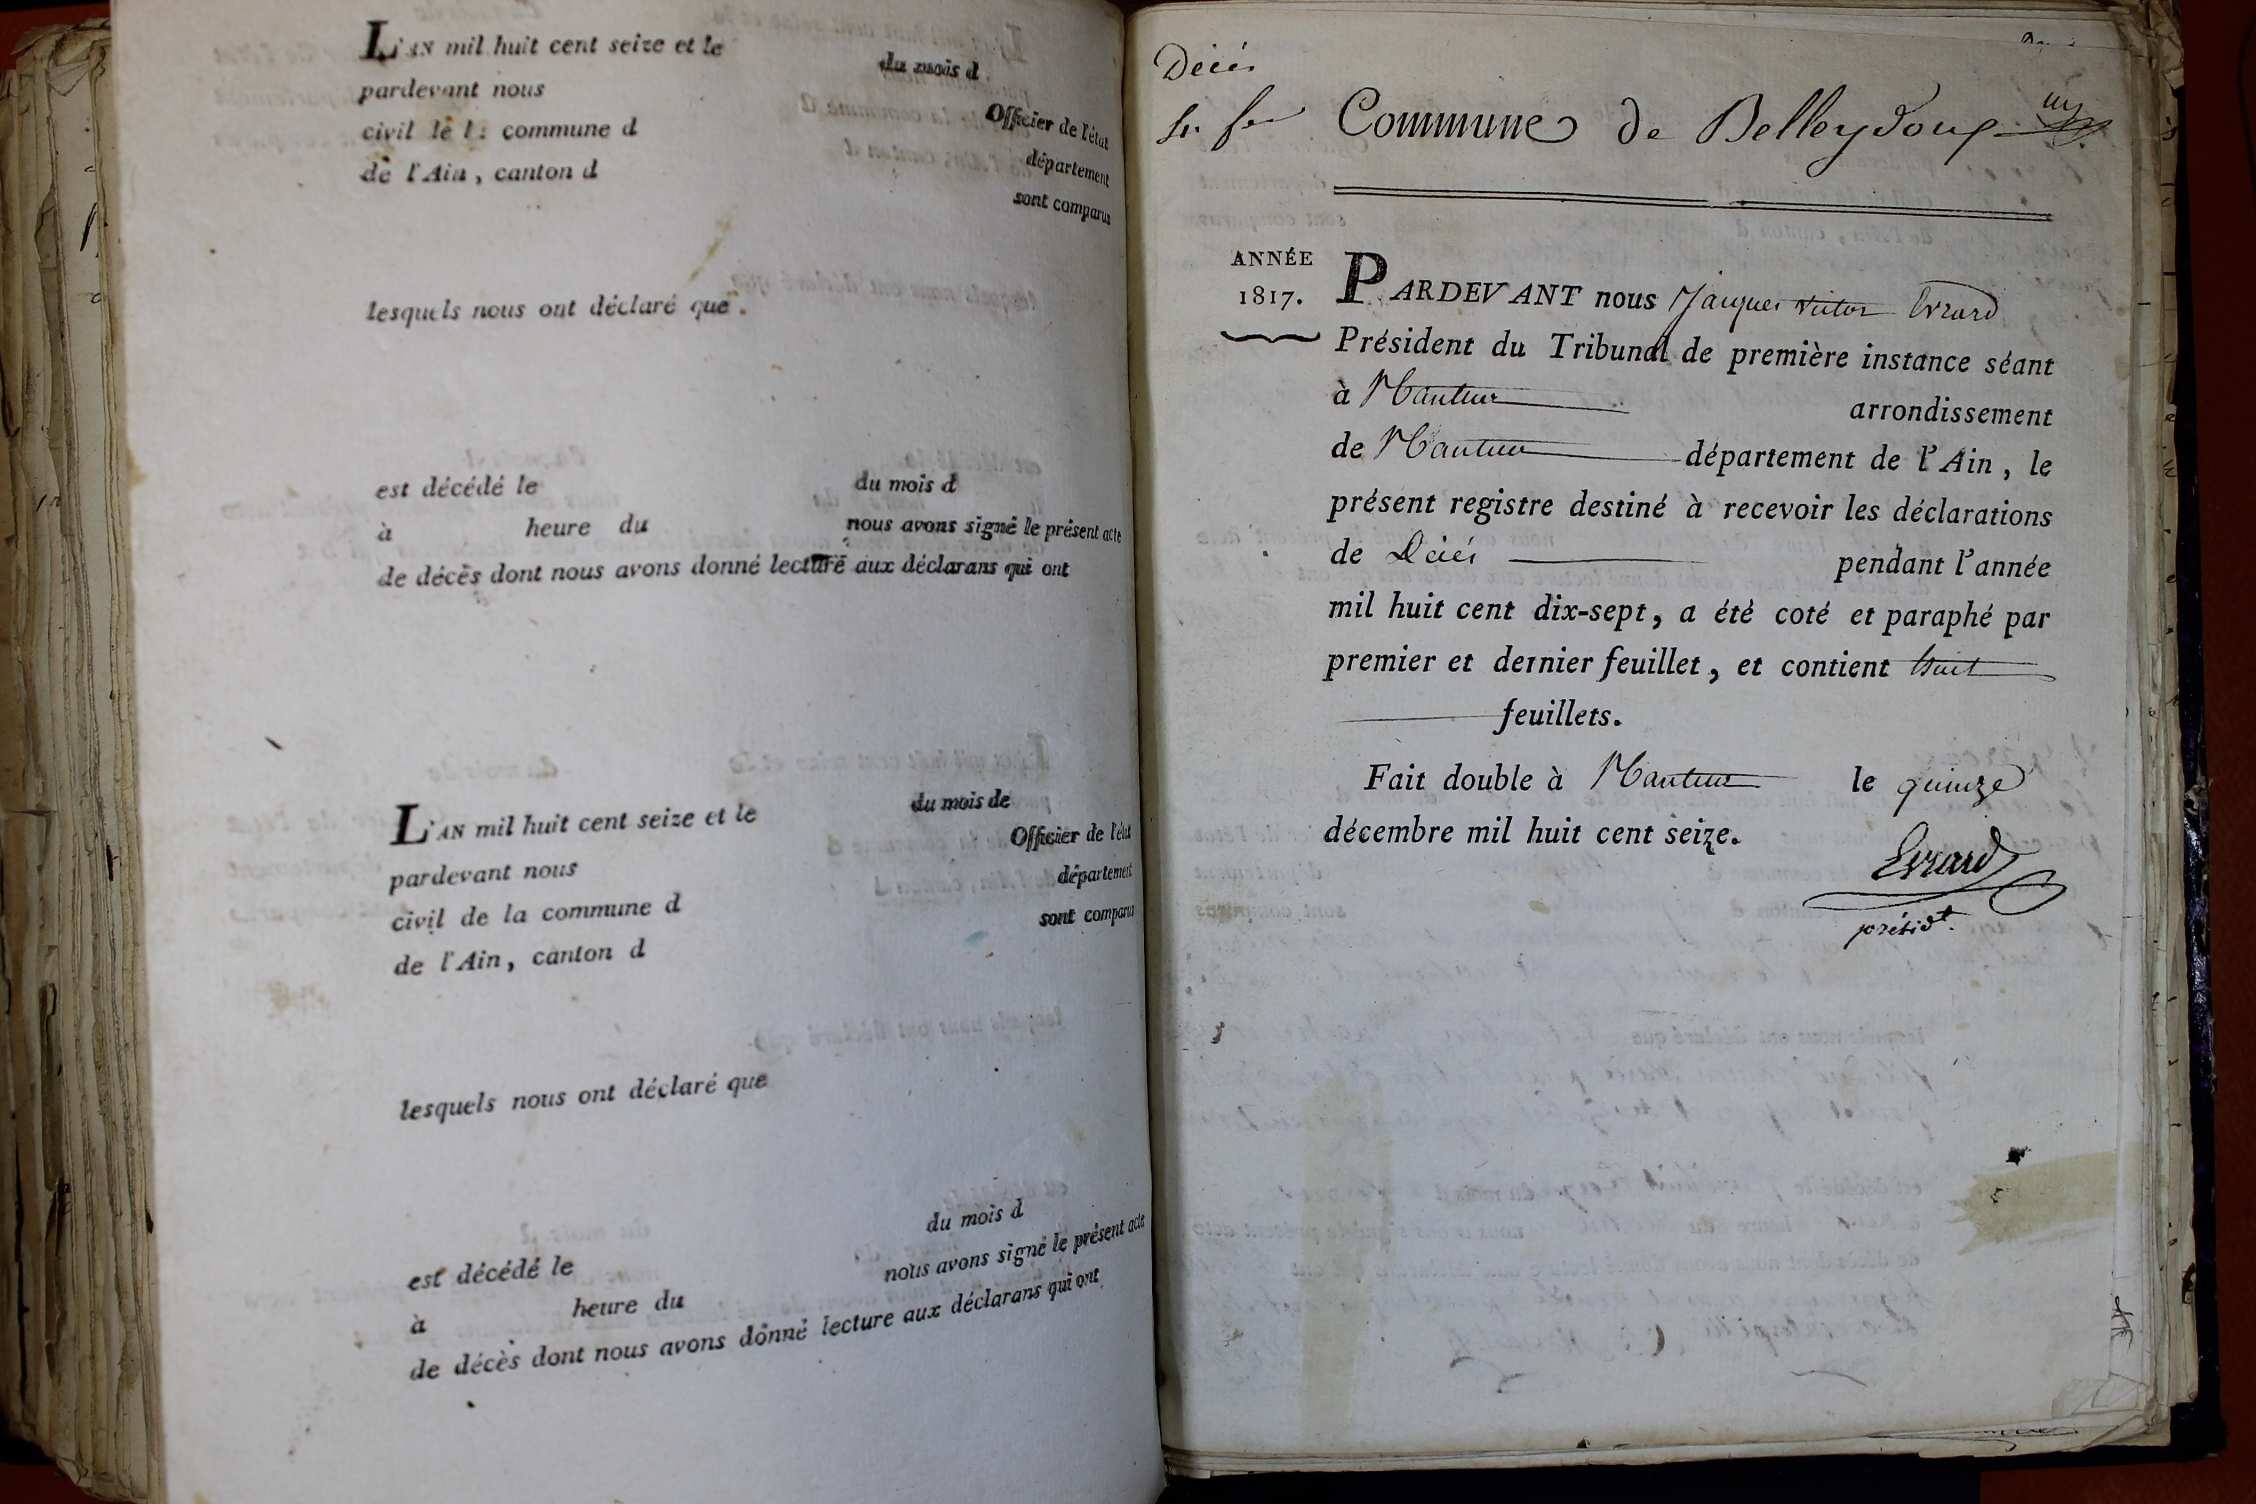 L'AN mil huit cent seize et le du mois d
pardevant nous Officier de l'état
civil de la commune d département
de l'Ain, canton d sont comparus
lesquels nous ont déclaré que
est décédé le du mois d
à heure du nous avons signé le présent acte
de décès dont nous avons donné lecture aux déclarans qui ont
L'AN mil huit cent seize et le du mois de
pardevant nous Officier de l'état
civil de la commune d département
de l'Ain, canton d sont comparus
lesquels nous ont déclaré que
est décédé le du mois d
à heure du nous avons signé le présent acte
de décès dont nous avons donné lecture aux déclarans qui ont
Décés
Commune de Belleydoux
ANNÉE
1817.
PARDEVANT nous Jacques Victor Evrard
Président du Tribunal de première instance séant
à Nantua arrondissement
de Nantua département de l'Ain, le
présent registre destiné à recevoir les déclarations
de Décés pendant l'année
mil huit cent dix-sept, a été coté et paraphé par
premier et dernier feuillet, et contient huit
feuillets.
Fait double à Nantua le quinze
décembre mil huit cent seize.
Evrard
présidt.